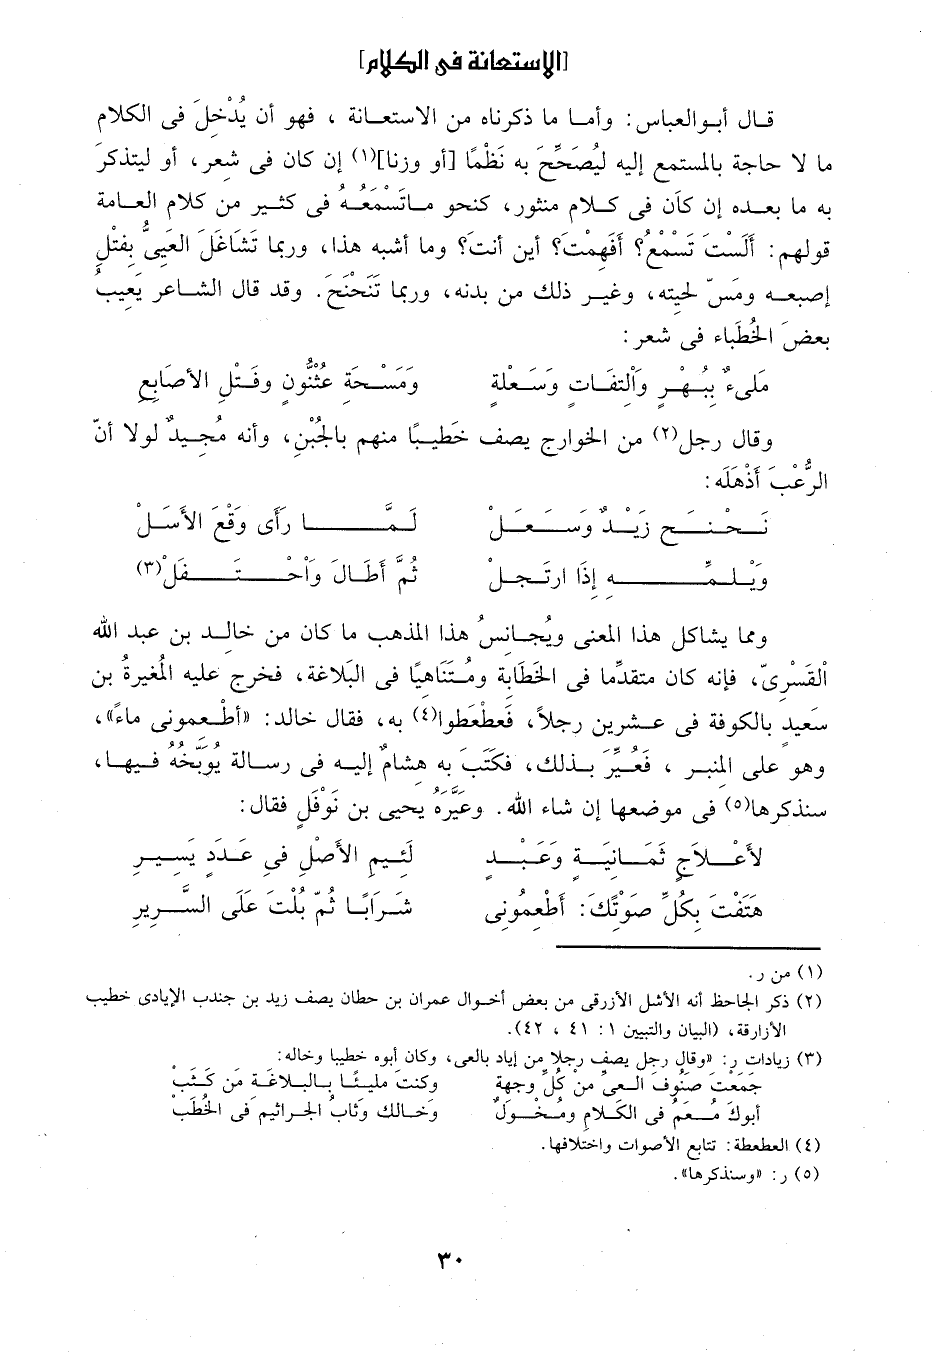 [الاستعانة فى الكلام]
قال أبو العباس: وأما ما ذكرناه من الاستعانة ، فهو أن يُدْخِلَ فى الكلام
ما لا حاجة بالمستمع إليه ليُصَحِّحَ به نَظْمًا [أو وزنا](١) إن كان فى شعر، أو ليتذكرَ
به ما بعده إن كان فى كلام منثور، كنحو ماتَسْمَعُهُ فى كثير من كلام العامة
قولهم: أَلَسْتَ تَسْمَعُ؟ أَفَهِمْتَ؟ أين أنتَ؟ وما أشبه هذا، وربما تَشَاغَلَ العَيِىُّ بِفَتْلِ
إصبعه ومَسّ لحيته، وغير ذلك من بدنه، وربما تَنَحْنَحَ. وقد قال الشاعر يَعِيبُ
بعضَ الخُطَبَاء فى شعر :
مَلىءٌ بِبُهْرٍ وَالْتِفَاتٍ وَسَعْلَةٍ وَمَسْحَةِ عُثْنُونٍ وفَتْلِ الأصَابِعِ
وقال رجل(٢) من الخوارج يصف خَطيبًا منهم بالجُبْنِ، وأنه مُجيدٌ لولا أنّ
الرُّعْبَ أَذْهَلَه:
نَحْنَحَ زَيْدٌ وَسَعَلْ لَمَّا رَأى وَقْعَ الأسَلْ
وَيْلِمِّهِ إذَا ارتَجلْ ثُمَّ أطَالَ وَاحْتَفَلْ(٣)
ومما يشاكل هذا المعنى ويُجَانِسُ هذا المذهب ما كان من خالد بن عبد الله
الْقَسْرِىّ، فإنه كان متقدِّما فى الخَطَابة ومُتَنَاهيًا فى البَلاغة، فخرج عليه المُغيرةُ بن
سَعِيد بالكوفة فى عشرين رجلاً، فَعَطْعَطوا(٤) به، فقال خالد: «أطْعمونى ماءً»،
وهو على المنبر ، فَعُيِّرَ بذلك، فكَتَبَ به هشامٌ إليه فى رسالة يُوَبِّخُهُ فيها،
سنذكرها(٥) فى موضعها إن شاء الله. وعَيَّرَهُ يحيى بن نَوْفَلٍ فقال:
لأَعْلاَجٍ ثَمَانِيَةٍ وَعَبْدٍ لَئِيمِ الأَصْلِ فى عَدَدٍ يَسِيرِ
هَتَفْتَ بِكُلِّ صَوْتِكَ: أطْعِمُونى شَرَابًا ثُمّ بُلْتَ عَلَى السَّرِيرِ
(١) من ر.
(٢) ذكر الجاحظ أنه الأشل الأزرقى من بعض أخوال عمران بن حطان يصف زيد بن جندب الإيادى خطيب
الأزارقة، (البيان والتبيين ١: ٤١ ، ٤٢).
(٣) زيادات ر: «وقال رجل يصف رجلا من إياد بالعى، وكان أبوه خطيبا وخاله:
جَمَعْتَ صنُوفَ العىِّ مِنْ كُلِّ وجهةٍ وكنتَ مليئًا بالبلاغَةِ مَنْ كَثَبْ
أبوكَ مُعِمٌّ فى الكَلامِ ومُخْوِلٌ وَخالكَ وَثَابُ الجراثيم فى الخُطَبْ
(٤) العطعطة: تتابع الأصوات واختلافها.
(٥) ر: «وسنذكرها».
٣٠